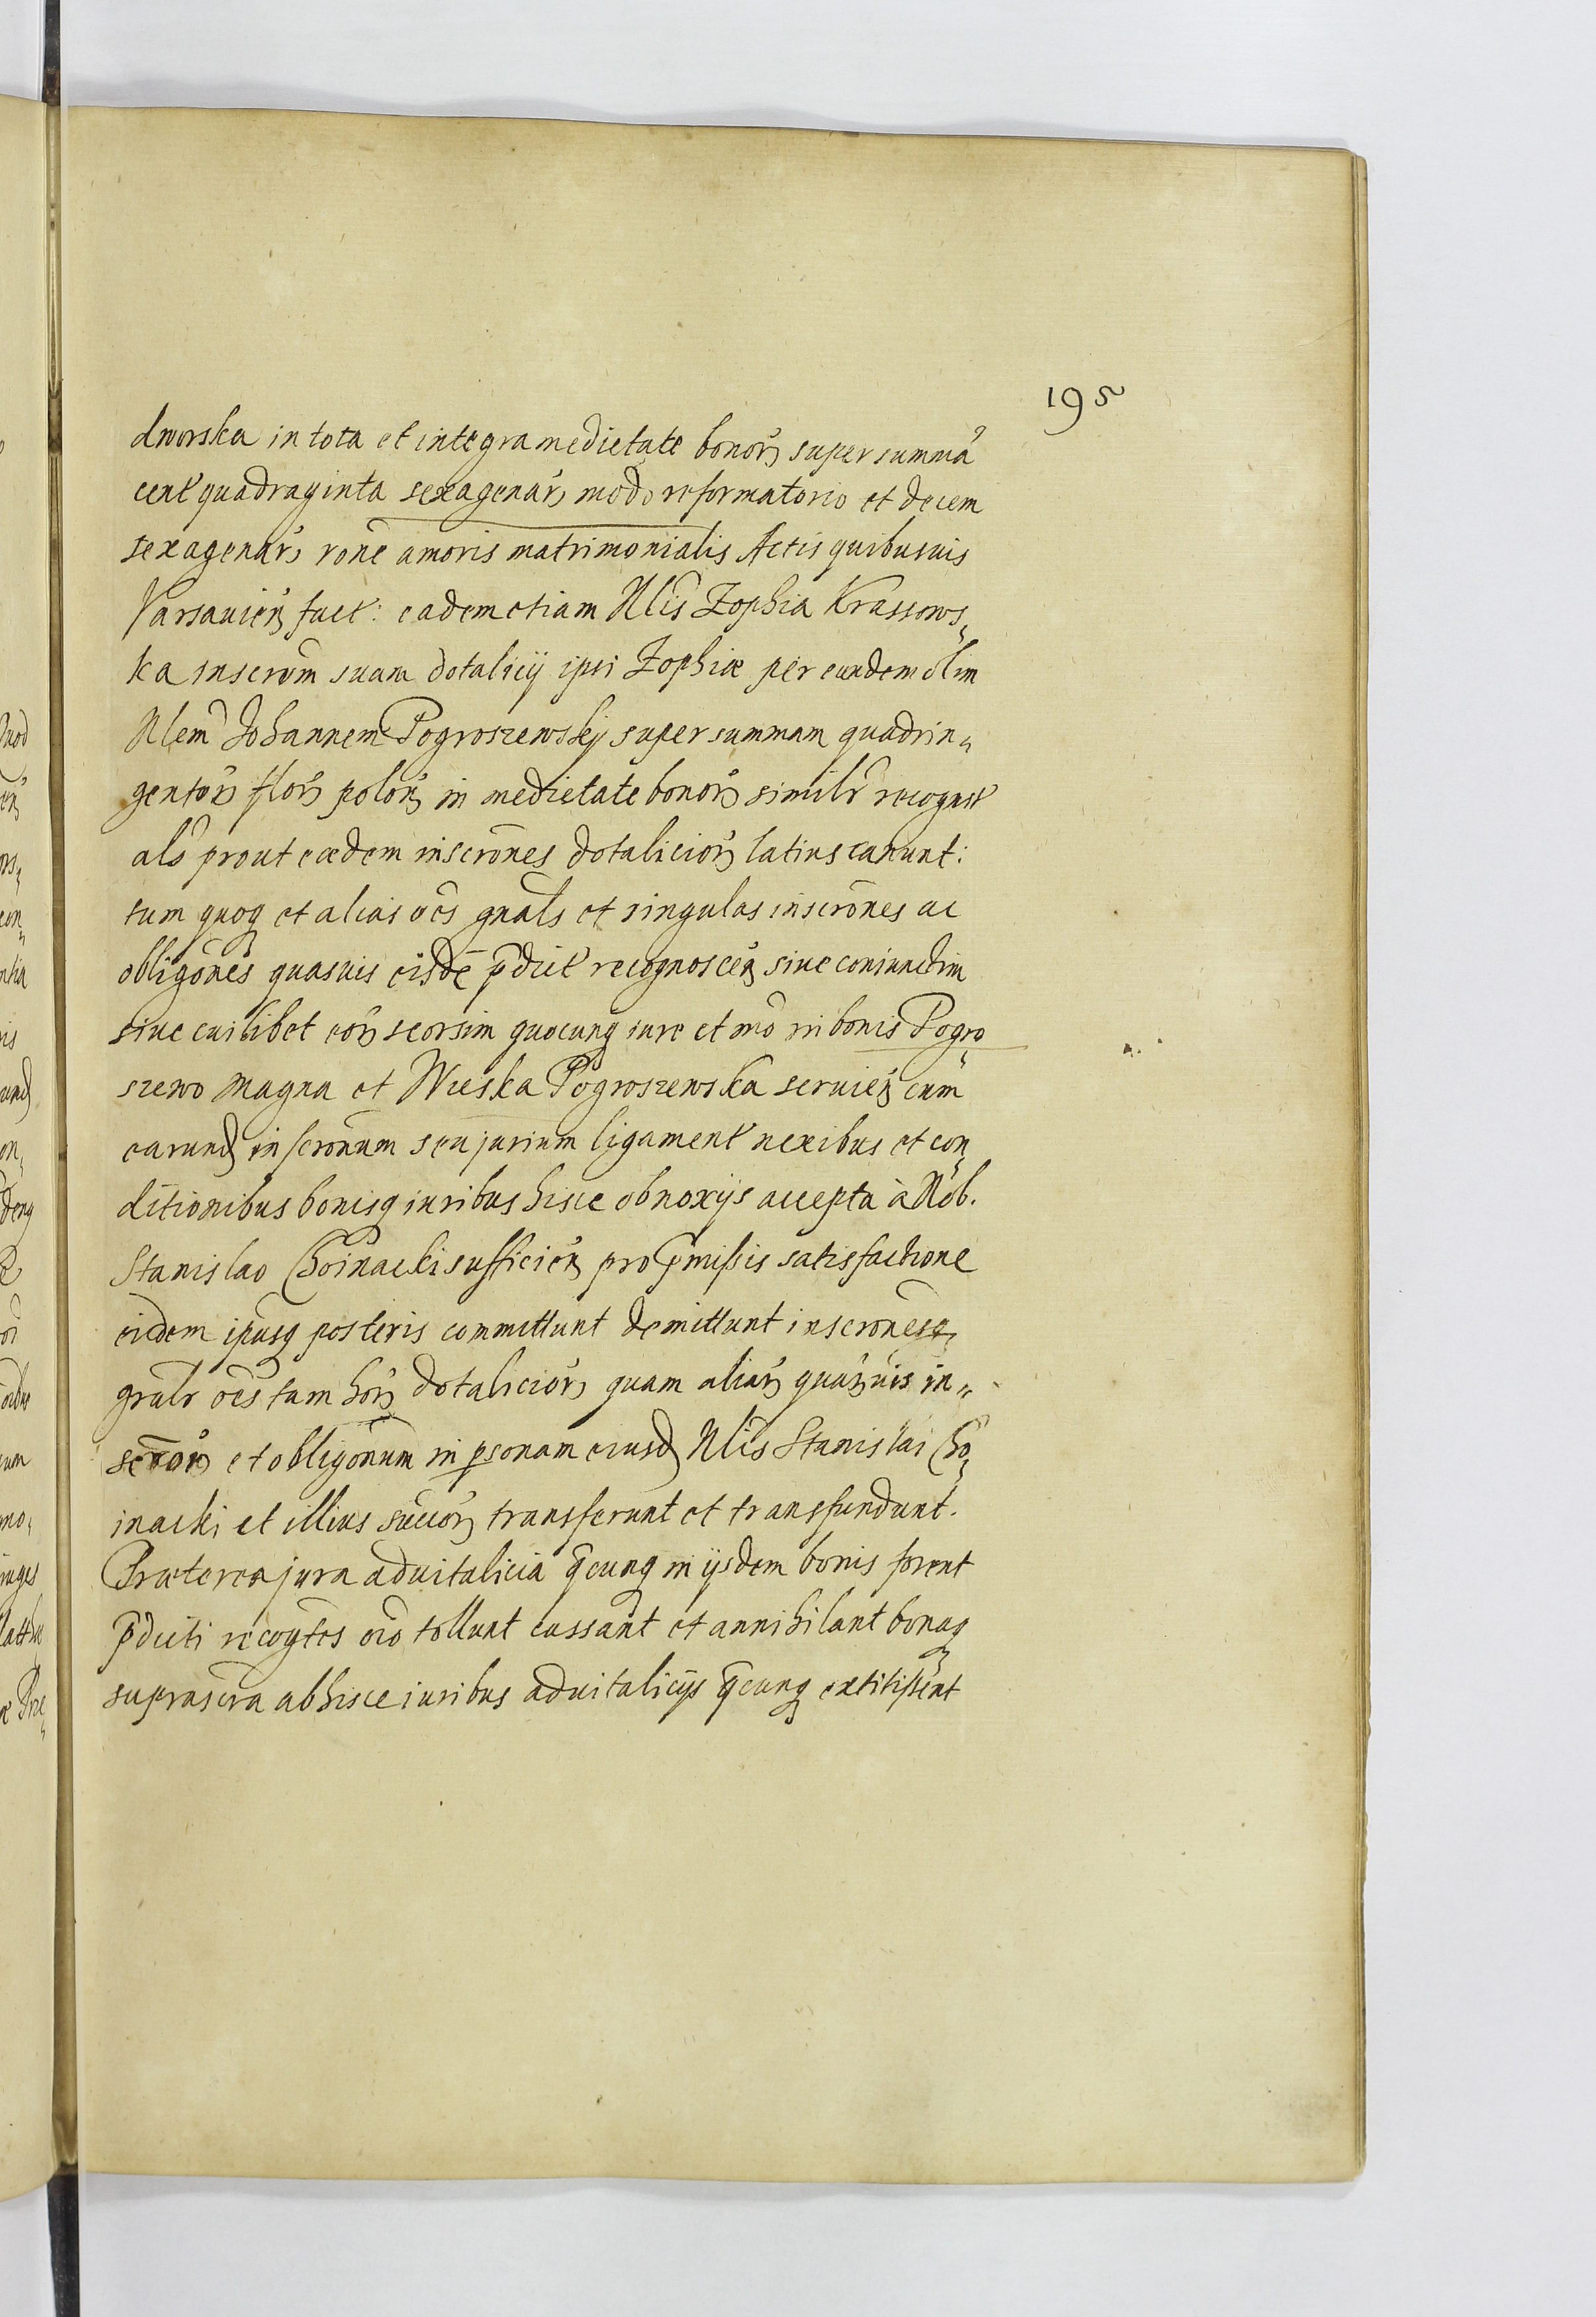 195
dworska in tota et integra medietate bonor super summa
cent quadraginta sexagenar modo reformatorio et decem
sexagenar rone amoris matrimonialis Actis quibusuis
Varsauien fact: eadem etiam Nlis Zophia Krassows„
ka inscrom suam dotalicij ipsi Zophiæ per eundem olim
Nlem Johannem Pogroszewskij super summam quadrin„
gentor flor polon in medietate bonor similr recognit
als prout eædem inscrones dotalicior latius canunt:
tum quoq et alias oēs gnals et singulas inscrones ac
obligones quasuis eisdē pdict recognoscen siue coniunctim
siue cuilibet eor seorsim quocunq iure et mō in bonis Pogro„
szewo magna et Wieska Pogroszewska seruien cum
earund inscronum seu jurium ligament nexibus et con„
ditionibus bonisq iuribus hisce obnoxijs accepta à Nob.
Stanislao Choinacki sufficien pro pmissis satisfactione
eidem ipsiusq posteris committunt demittunt inscronesq
gnalr oēs tam hor dotalicior quam aliar quaruis in„
scror et obligonum in psonam eiusd Nlis Stanislai Cho„
inacki et illius succor transferunt et transfundunt.
Præterea jura aduitalicia qcunq in ijsdem bonis forent
pdicti recogtes oīo tollunt cassant et annihilant bonaq
suprascra ab hisce iuribus aduitalicijs qcunq extitissent
Quod
con„
ntia
is
und
on„
rum
mo„
iuges
æ Præ„